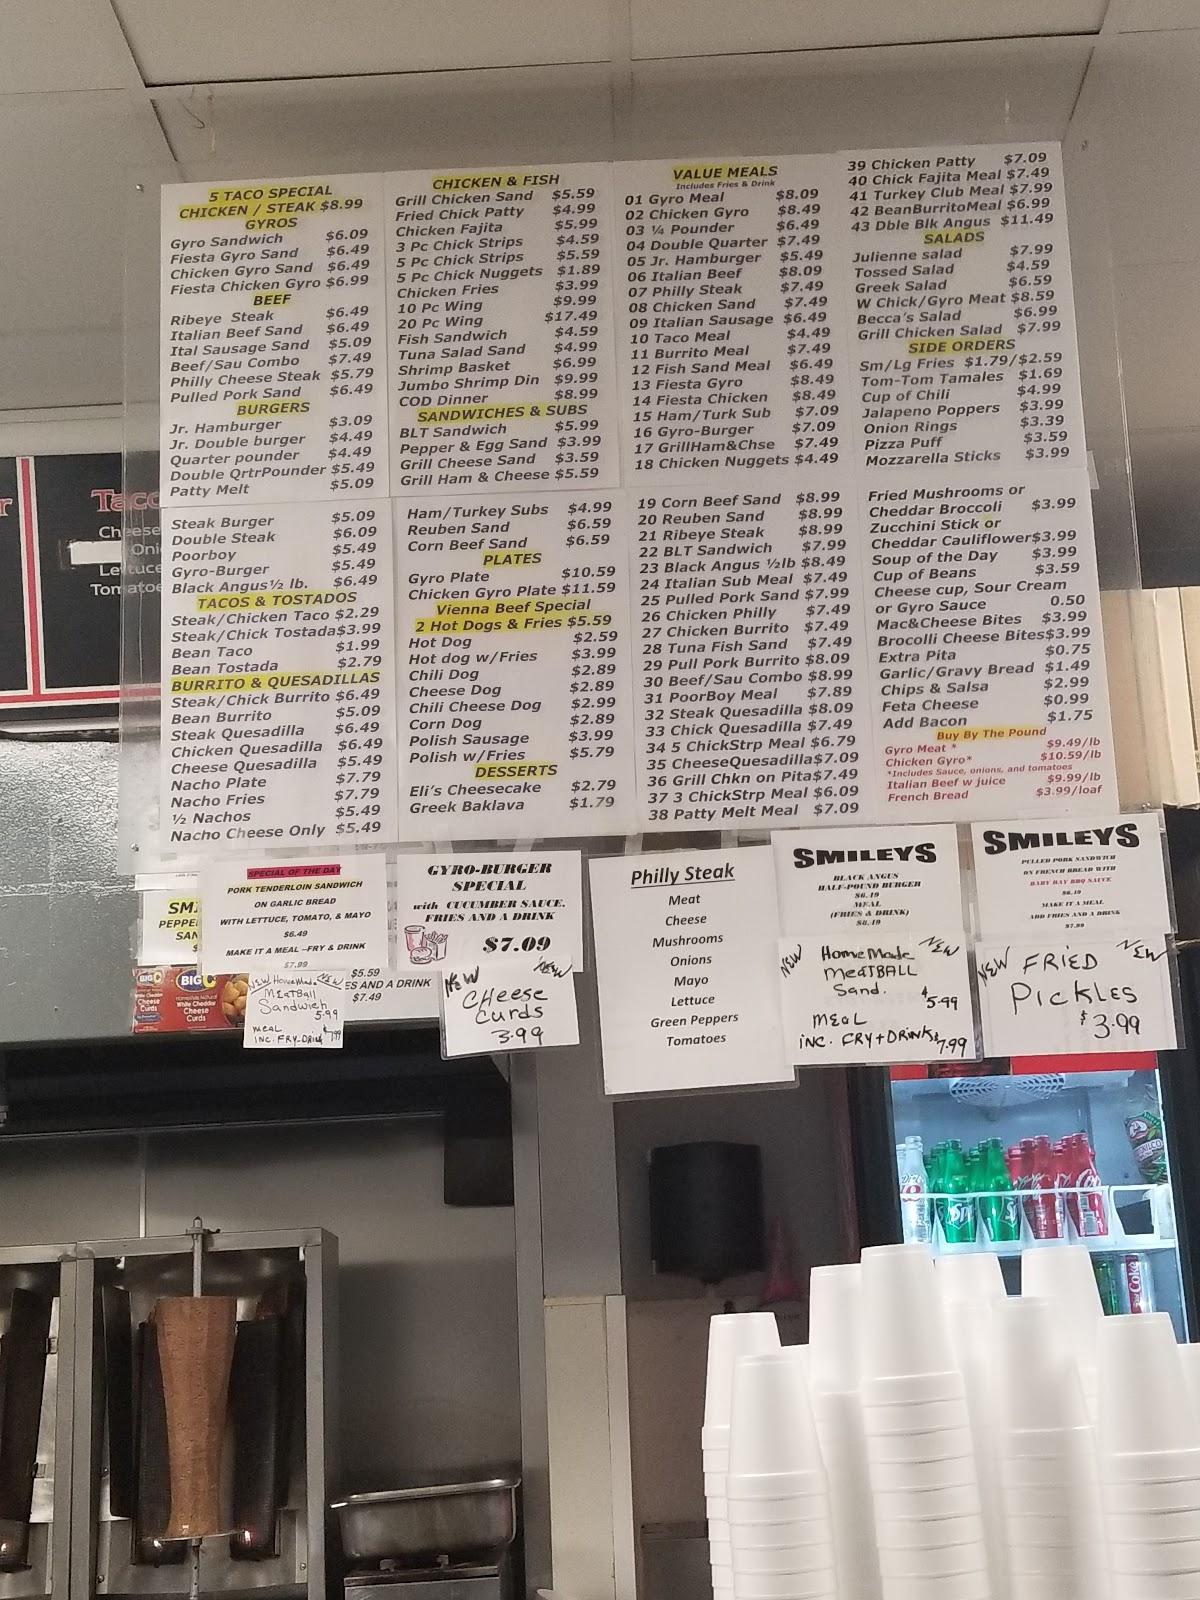 5 TACO SPECIAL
CHICKEN / STEAK $8.99
GYROS
Gyro Sandwich $6.09
Fiesta Gyro Sand $6.49
Chicken Gyro Sand $6.49
Fiesta Chicken Gyro $6.99
BEEF
Ribeye Steak $6.49
Italian Beef Sand $6.49
Ital Sausage Sand $5.09
Beef/Sau Combo $7.49
Philly Cheese Steak $5.79
Pulled Pork Sand $6.49
BURGERS
Jr. Hamburger $3.09
Jr. Double burger $4.49
Quarter pounder $4.49
Double QrtrPounder $5.49
Patty Melt $5.09
Steak Burger $5.09
Double Steak $6.09
Poorboy $5.49
Gyro-Burger $5.49
Black Angus½ lb. $6.49
TACOS & TOSTADOS
Steak/Chicken Taco $2.29
Steak/Chick Tostada $3.99
Bean Taco $1.99
Bean Tostada $2.79
BURRITO & QUESADILLAS
Steak/Chick Burrito $6.49
Bean Burrito $5.09
Steak Quesadilla $6.49
Chicken Quesadilla $6.49
Cheese Quesadilla $5.49
Nacho Plate $7.79
Nacho Fries $7.79
½ Nachos $5.49
Nacho Cheese Only $5.49
CHICKEN & FISH
Grill Chicken Sand $5.59
Fried Chick Patty $4.99
Chicken Fajita $5.99
3 Pc Chick Strips $4.59
5 Pc Chick Strips $5.59
5 Pc Chick Nuggets $1.89
Chicken Fries $3.99
10 Pc Wing $9.99
20 Pc Wing $17.49
Fish Sandwich $4.59
Tuna Salad Sand $4.99
Shrimp Basket $6.99
Jumbo Shrimp Din $9.99
COD Dinner $8.99
SANDWICHES & SUBS
BLT Sandwich $5.99
Pepper & Egg Sand $3.99
Grill Cheese Sand $3.59
Grill Ham & Cheese $5.59
Ham/Turkey Subs $4.99
Reuben Sand $6.59
Corn Beef Sand $6.59
PLATES
Gyro Plate $10.59
Chicken Gyro Plate $11.59
Vienna Beef Special
2 Hot Dogs & Fries $5.59
Hot Dog $2.59
Hot dog w/Fries $3.99
Chili Dog $2.89
Cheese Dog $2.89
Chili Cheese Dog $2.99
Corn Dog $2.89
Polish Sausage $3.99
Polish w/Fries $5.79
DESSERTS
Eli's Cheesecake $2.79
Greek Baklava $1.79
VALUE MEALS
Includes Fries & Drink
01 Gyro Meal $8.09
02 Chicken Gyro $8.49
03 ¼ Pounder $6.49
04 Double Quarter $7.49
05 Jr. Hamburger $5.49
06 Italian Beef $8.09
07 Philly Steak $7.49
08 Chicken Sand $7.49
09 Italian Sausage $6.49
10 Taco Meal $4.49
11 Burrito Meal $7.49
12 Fish Sand Meal $6.49
13 Fiesta Gyro $8.49
14 Fiesta Chicken $8.49
15 Ham/Turk Sub $7.09
16 Gyro-Burger $7.09
17 GrillHam&Chse $7.49
18 Chicken Nuggets $4.49
19 Corn Beef Sand $8.99
20 Reuben Sand $8.99
21 Ribeye Steak $8.99
22 BLT Sandwich $7.99
23 Black Angus ½lb $8.49
24 Italian Sub Meal $7.49
25 Pulled Pork Sand $7.99
26 Chicken Philly $7.49
27 Chicken Burrito $7.49
28 Tuna Fish Sand $7.49
29 Pull Pork Burrito $8.09
30 Beef/Sau Combo $8.99
31 PoorBoy Meal $7.89
32 Steak Quesadilla $8.09
33 Chick Quesadilla $7.49
34 5 ChickStrp Meal $6.79
35 CheeseQuesadilla $7.09
36 Grill Chkn on Pita $7.49
37 3 ChickStrp Meal $6.09
38 Patty Melt Meal $7.09
39 Chicken Patty $7.09
40 Chick Fajita Meal $7.49
41 Turkey Club Meal $7.99
42 BeanBurritoMeal $6.99
43 Dble Blk Angus $11.49
SALADS
Julienne salad $7.99
Tossed Salad $4.59
Greek Salad $6.59
W Chick/Gyro Meat $8.59
Becca's Salad $6.99
Grill Chicken Salad $7.99
SIDE ORDERS
Sm/Lg Fries $1.79/$2.59
Tom-Tom Tamales $1.69
Cup of Chili $4.99
Jalapeno Poppers $3.99
Onion Rings $3.39
Pizza Puff $3.59
Mozzarella Sticks $3.99
Fried Mushrooms or
Cheddar Broccoli $3.99
Zucchini Stick or
Cheddar Cauliflower $3.99
Soup of the Day $3.99
Cup of Beans $3.59
Cheese cup, Sour Cream
or Gyro Sauce 0.50
Mac&Cheese Bites $3.99
Brocolli Cheese Bites $3.99
Extra Pita $0.75
Garlic/Gravy Bread $1.49
Chips & Salsa $2.99
Feta Cheese $0.99
Add Bacon $1.75
Buy By The Pound
Gyro Meat * $9.49/lb
Chicken Gyro* $10.59/lb
*Includes Sauce, onions, and tomatoes
Italian Beef w juice $9.99/lb
French Bread $3.99/loaf
Taco
Cheese
Oni
Lettuce
Tomatoe
SPECIAL OF THE DAY
PORK TENDERLOIN SANDWICH
ON GARLIC BREAD
WITH LETTUCE, TOMATO, & MAYO
$6.49
MAKE IT A MEAL –FRY & DRINK
$7.99
SM
PEPPE
SAN
$5.59
ES AND A DRINK
$7.49
BIG C
White Cheddar
Cheese
Curds
BIG C
White Cheddar
Cheese
Curds
NEW HomeMade NEW
MEATBALL
Sandwich
5.99
MEAL
INC. FRY-Drink $7.99
GYRO-BURGER
SPECIAL
with CUCUMBER SAUCE,
FRIES AND A DRINK
$7.09
NEW NEW
CHeese
Curds
3.99
Philly Steak
Meat
Cheese
Mushrooms
Onions
Mayo
Lettuce
Green Peppers
Tomatoes
SMILEYS
BLACK ANGUS
HALF-POUND BURGER
$6.49
MEAL
(FRIES & DRINK)
$8.49
NEW HomeMade NEW
MEATBALL
Sand.
$5.99
MEAL
INC. FRY+DRINK $7.99
SMILEYS
PULLED PORK SANDWICH
ON FRENCH BREAD WITH
BABY RAY BBQ SAUCE
$6.49
MAKE IT A MEAL
ADD FRIES AND A DRINK
$7.99
NEW NEW
FRIED
PICKLES
$3.99
Coke